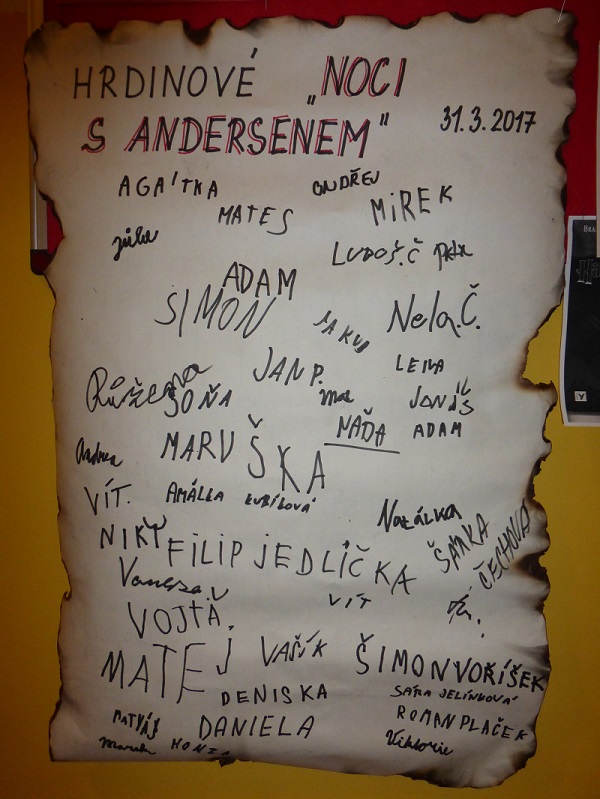 HRDINOVÉ „NOCI
S ANDERSENEM"
31.3.2017
AGA'TKA
ONDŘEJ
MATES
MiREK
LUDOŠ.Č Petr
ADAM
SIMON
JAKUB
Nela.Č.
JAN P.
LENA
Růžena
SOŇA
JONÁŠ
NAĎA
ADAM
MARUŠKA
Andrea
VÍT.
AMÁLKA KUBÍKOVÁ
Natálka
NIKČ
FILIP JEDLIČKA
ŠÁRKA
ČECHOVÁ
Vanessa.V
VÍT
VOJTA.
MATEJ
VAŠÍK
ŠIMON VOŘÍŠEK
DENISKA
SÁRA JELÍNKOVÁ
MATYÁŠ
DANIELA
ROMAN PLAČEK
Marek
HONZA
Viktorie